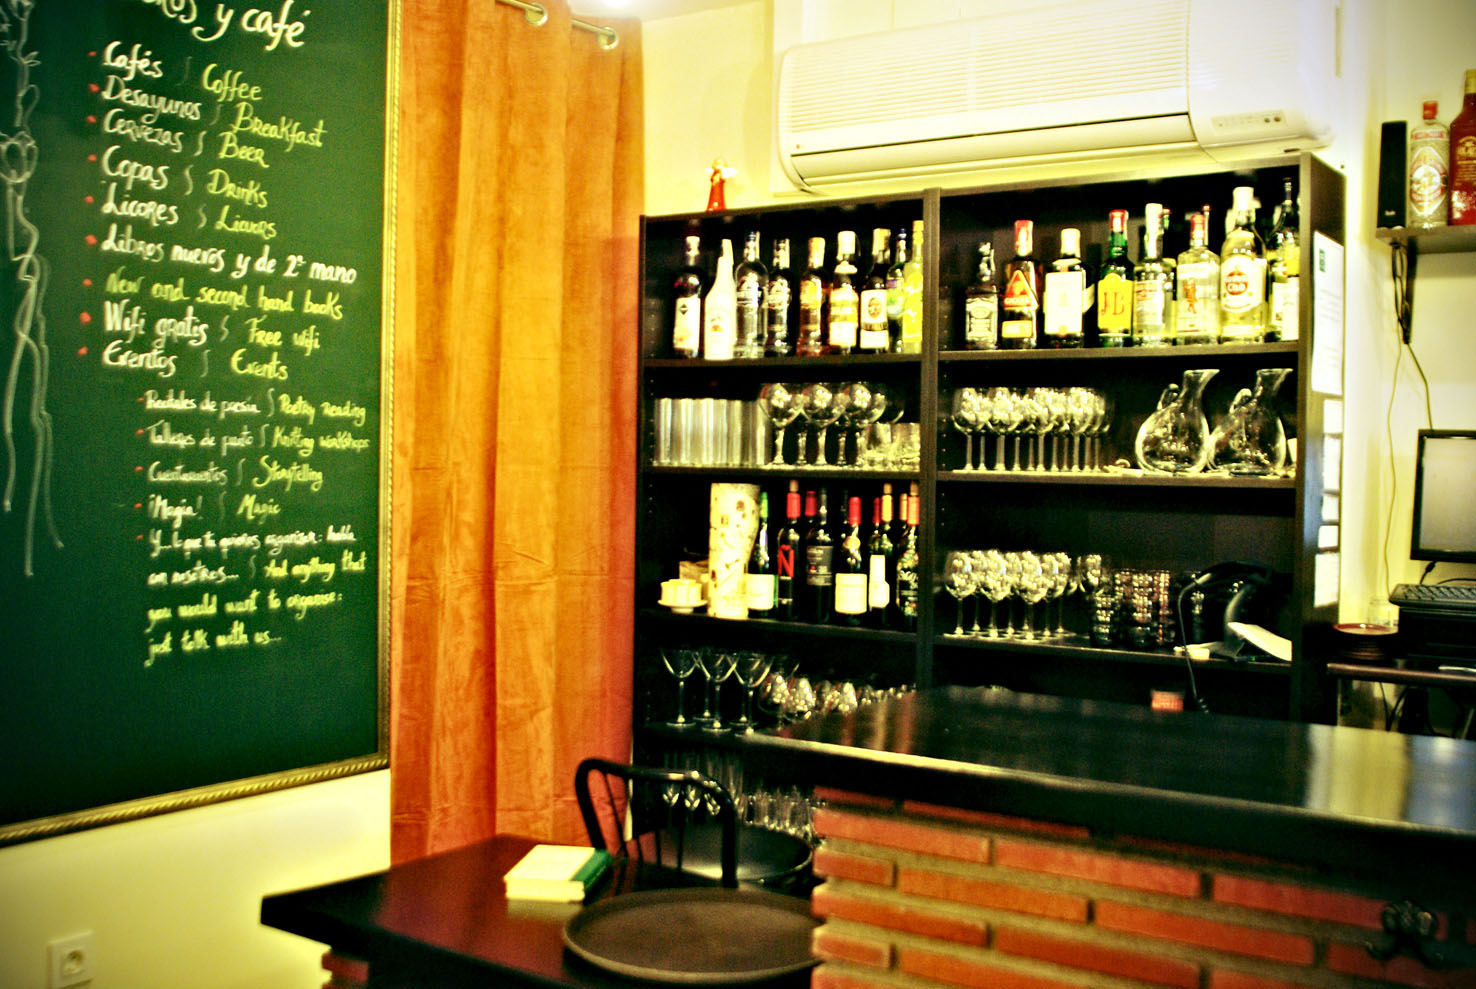 y café
Cafés / Coffee
Desayunos / Breakfast
Cervezas / Beer
Copas / Drinks
Licores / Liquors
Libros nuevos y de 2ª mano
New and second hand books
Wifi gratis / Free wifi
Eventos / Events
Recitales de poesía / Poetry reading
Talleres de punto / Knitting workshops
Cuentacuentos / Storytelling
¡Magia! / Magic
Y... lo que tu quieras organizar: habla
con nosotros... / And anything that
you would want to organise:
just talk with us...
J&B
Ñ